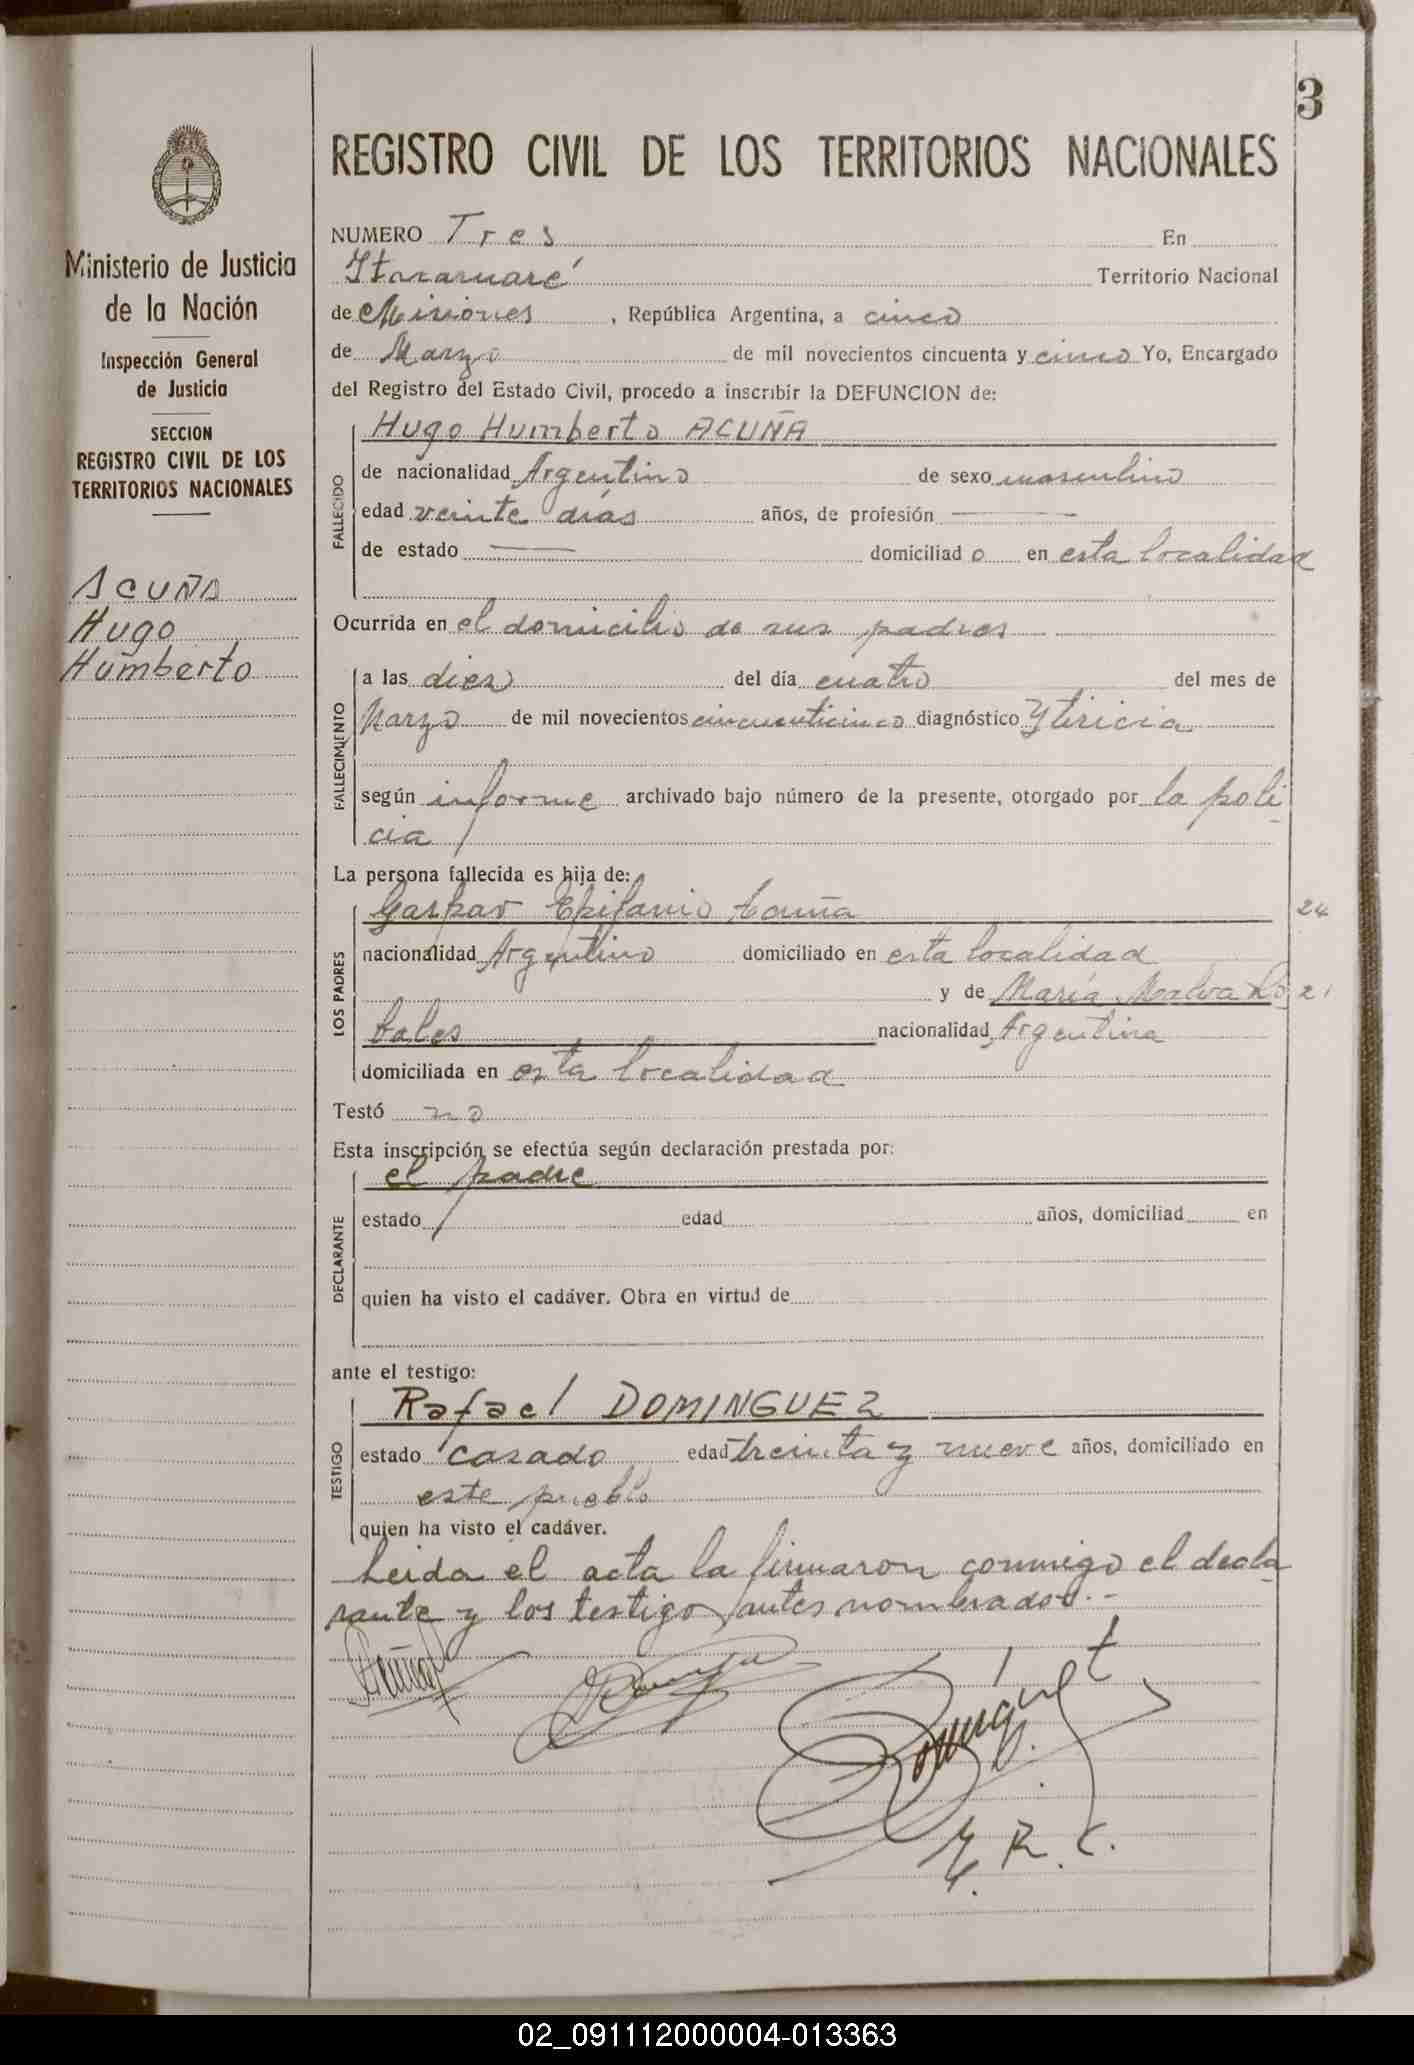 3
REGISTRO CIVIL DE LOS TERRITORIOS NACIONALES
Ministerio de Justicia
de la Nación
Inspección General
de Justicia
SECCION
REGISTRO CIVIL DE LOS
TERRITORIOS NACIONALES
ACUÑA
Hugo
Humberto
NUMERO Tres En
Itacaruaré Territorio Nacional
de Misiones, República Argentina, a cinco
de Marzo de mil novecientos cincuenta y cinco Yo, Encargado
del Registro del Estado Civil, procedo a inscribir la DEFUNCION de:
Hugo Humberto ACUÑA
FALLECIDO
de nacionalidad Argentino de sexo masculino
edad veinte días años, de profesión —
de estado — domiciliad o en esta localidad
Ocurrida en el domicilio de sus padres
FALLECIMIENTO
a las diez del día cuatro del mes de
Marzo de mil novecientos cincuenticinco diagnóstico Ytiricia
según informe archivado bajo número de la presente, otorgado por la poli
cia
La persona fallecida es hija de:
Gaspar Epifanio Acuña 24
LOS PADRES
nacionalidad Argentino domiciliado en esta localidad
y de María Malva 21
nacionalidad Argentina
domiciliada en esta localidad
Testó no
Esta inscripción se efectúa según declaración prestada por:
el padre
DECLARANTE
estado edad años, domiciliad en
quien ha visto el cadáver. Obra en virtud de
ante el testigo:
Rafael DOMINGUEZ
TESTIGO
estado casado edad treinta y nueve años, domiciliado en
este pueblo
quien ha visto el cadáver.
Leida el acta la firmaron conmigo el decla
rante y los testigo antes nombrados.-
Acuña
E. R. C.
02_091112000004-013363